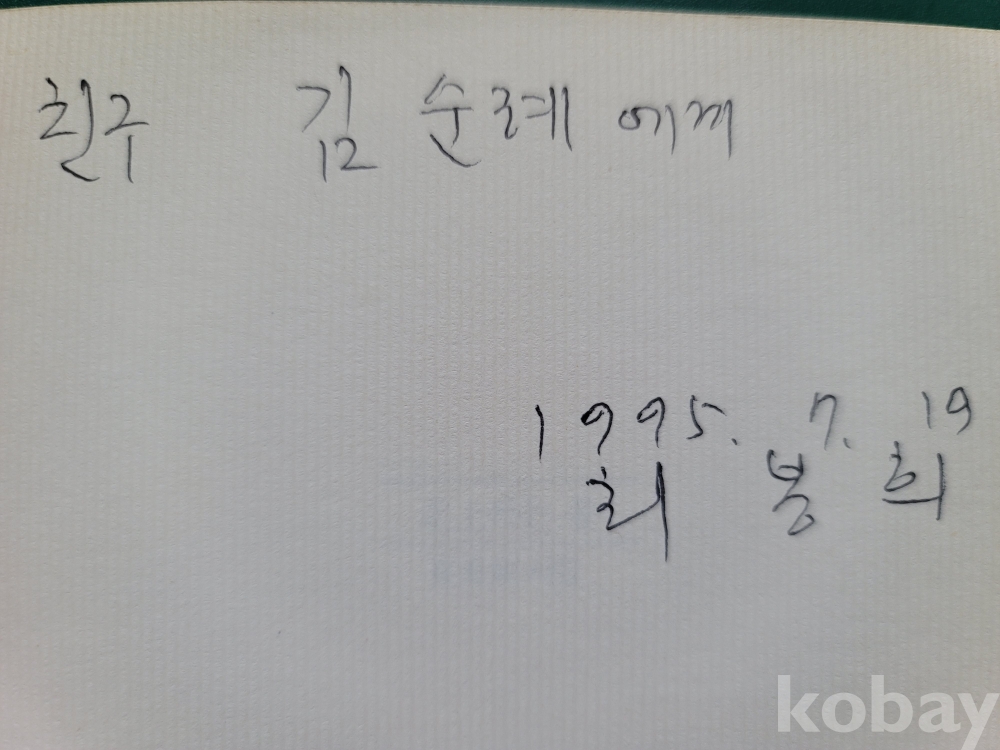 친구 김 순례 에게
1995. 7. 19
최 봉 희
kobay